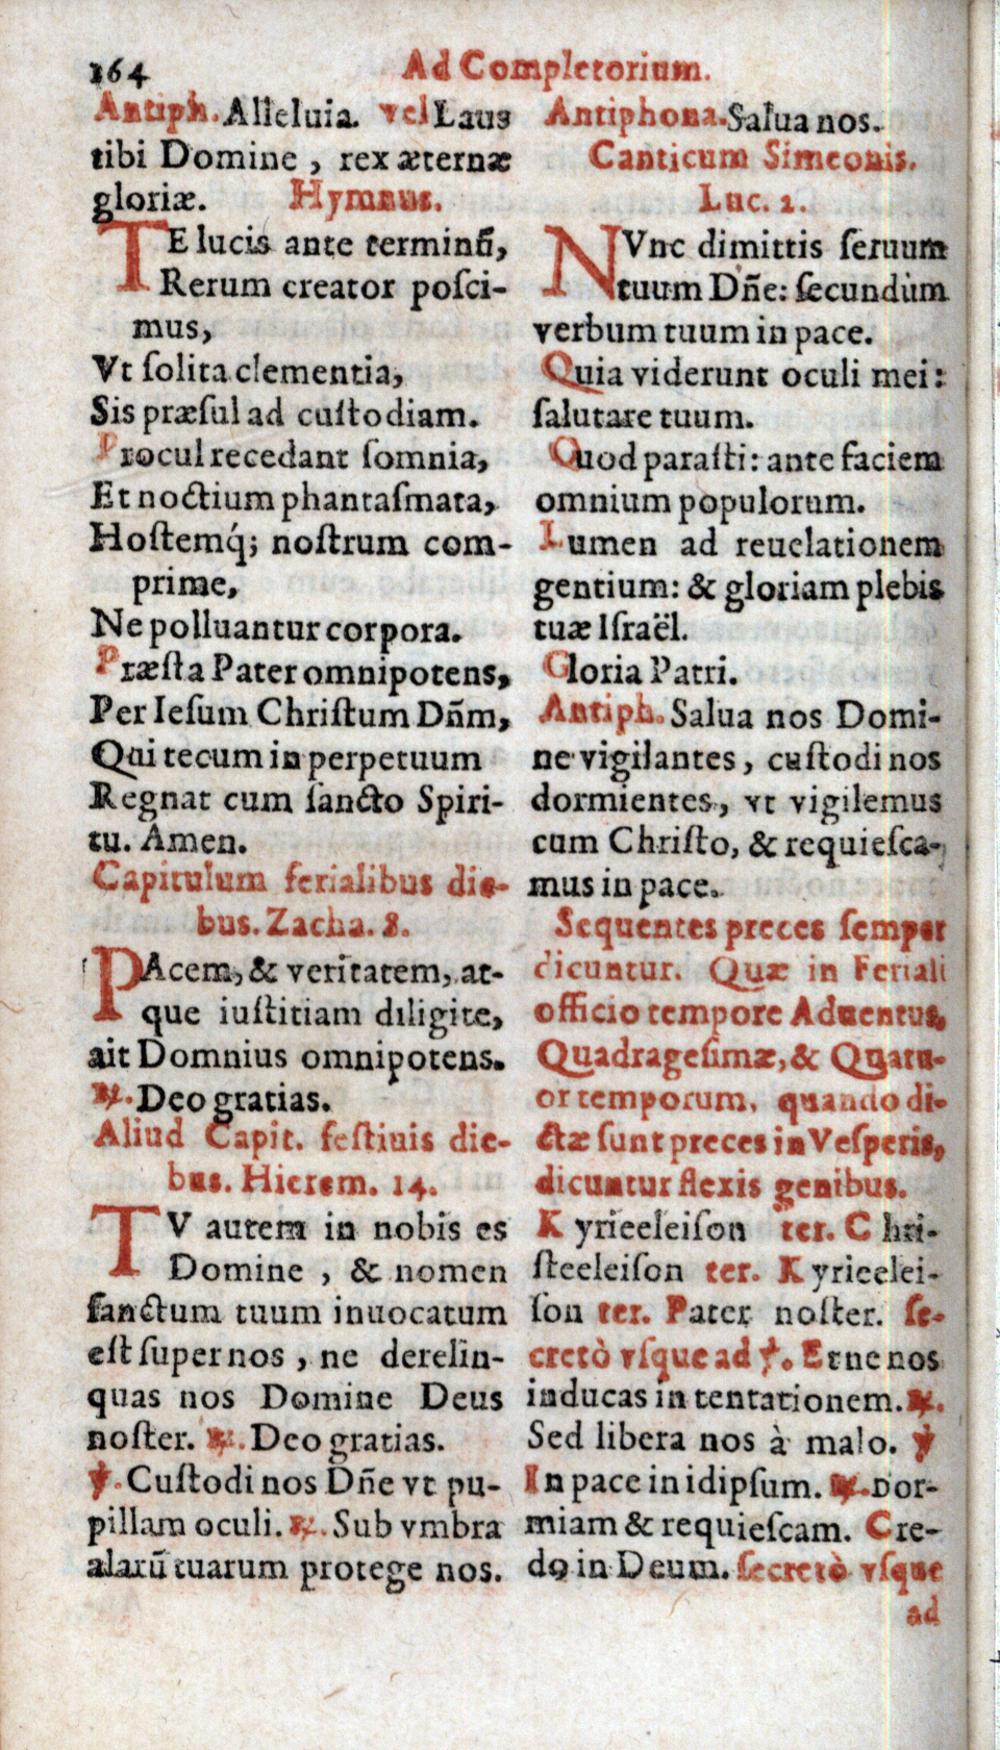 164
Ad Completorium.
Antiph. Alleluia. vel Laus
tibi Domine , rex æternæ
gloriæ. Hymnus.
TE lucis ante terminū,
Rerum creator posci-
mus,
Vt solita clementia,
Sis præsul ad custodiam.
Procul recedant somnia,
Et noctium phantasmata,
Hostemq́; nostrum com-
prime,
Ne polluantur corpora.
Præsta Pater omnipotens,
Per Iesum Christum Dñm,
Qui tecum in perpetuum
Regnat cum sancto Spiri-
tu. Amen.
Capitulum ferialibus die-
bus. Zacha. 8.
PAcem, & veritatem, at-
que iustitiam diligite,
ait Domnius omnipotens.
℟. Deo gratias.
Aliud Capit. festiuis die-
bus. Hierem. 14.
TV autem in nobis es
Domine , & nomen
sanctum tuum inuocatum
est super nos , ne derelin-
quas nos Domine Deus
noster. ℟. Deo gratias.
℣. Custodi nos Dñe vt pu-
pillam oculi. ℟. Sub vmbra
alarū tuarum protege nos.
Antiphona. Salua nos.
Canticum Simeonis.
Luc. 2.
NVnc dimittis seruum
tuum Dñe: secundùm
verbum tuum in pace.
Quia viderunt oculi mei:
salutare tuum.
Quod parasti: ante faciem
omnium populorum.
Lumen ad reuelationem
gentium: & gloriam plebis
tuæ Israël.
Gloria Patri.
Antiph. Salua nos Domi-
ne vigilantes, custodi nos
dormientes, vt vigilemus
cum Christo, & requiesca-
mus in pace.
Sequentes preces semper
dicuntur. Quæ in Feriali
officio tempore Aduentus,
Quadragesimæ, & Quatu-
or temporum, quando di-
ctæ sunt preces in Vesperis,
dicuntur flexis genibus.
Kyrieeleison ter. Chri-
steeleison ter. Kyrieelei-
son ter. Pater noster. se-
cretò vsque ad ℣. Et ne nos
inducas in tentationem. ℟.
Sed libera nos à malo. ℣
In pace in idipsum. ℟. Dor-
miam & requiescam. Cre-
do in Deum. secretò vsque
ad